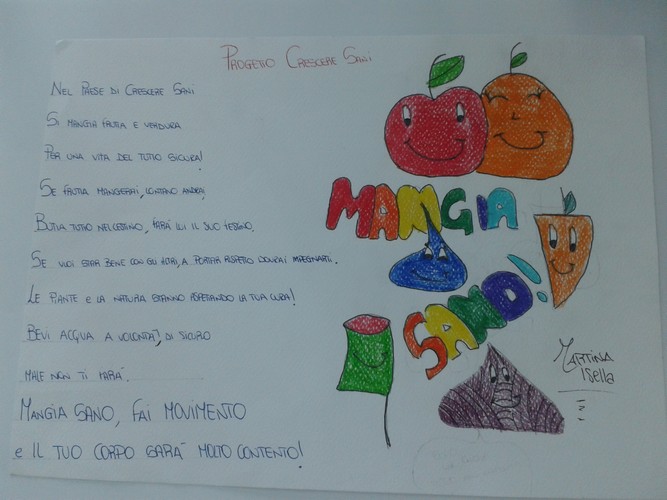 PROGETTO CRESCERE SANI
NEL PAESE DI CRESCERE SANI
SI MANGIA FRUTTA E VERDURA
PER UNA VITA DEL TUTTO SICURA!
SE FRUTTA MANGERAI, LONTANO ANDRAI
BUTTA TUTTO NEL CESTINO, FARÀ LUI IL SUO FESTINO.
SE VUOI STAR BENE CON GLI ALTRI, A PORTAR RISPETTO DOVRAI IMPEGNARTI.
LE PIANTE E LA NATURA STANNO ASPETTANDO LA TUA CURA!
BEVI ACQUA A VOLONTÀ, DI SICURO
MALE NON TI FARÀ.
MANGIA SANO, FAI MOVIMENTO
E IL TUO CORPO SARÀ MOLTO CONTENTO!
MAMGIA
SANO!
MARTINA
ISella